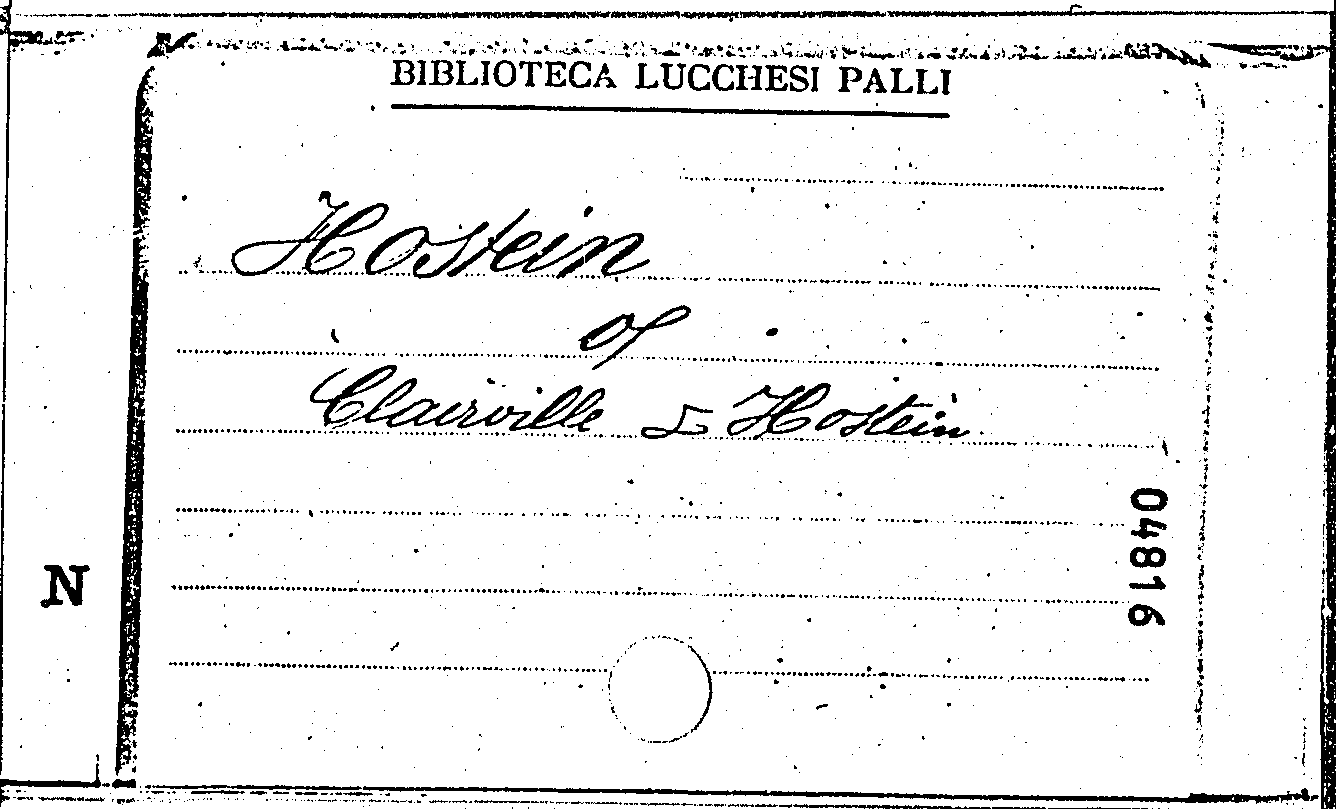 BIBLIOTECA LUCCHESI PALLI
Hostein
of
Clairville & Hostein
04816
N